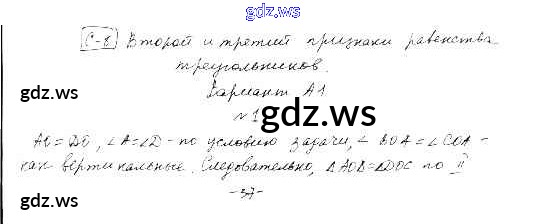 gdz.ws
С-8 Второй и третий признаки равенства
треугольников.
Вариант А1
gdz.ws
№1
gdz.ws
gdz.ws
АО = DO, ∠A = ∠D - по условию задачи, ∠ BOA = ∠COA -
как вертикальные. Следовательно, ΔAOB = ΔDOC по II
gdz.ws
gdz.ws
- 37 -